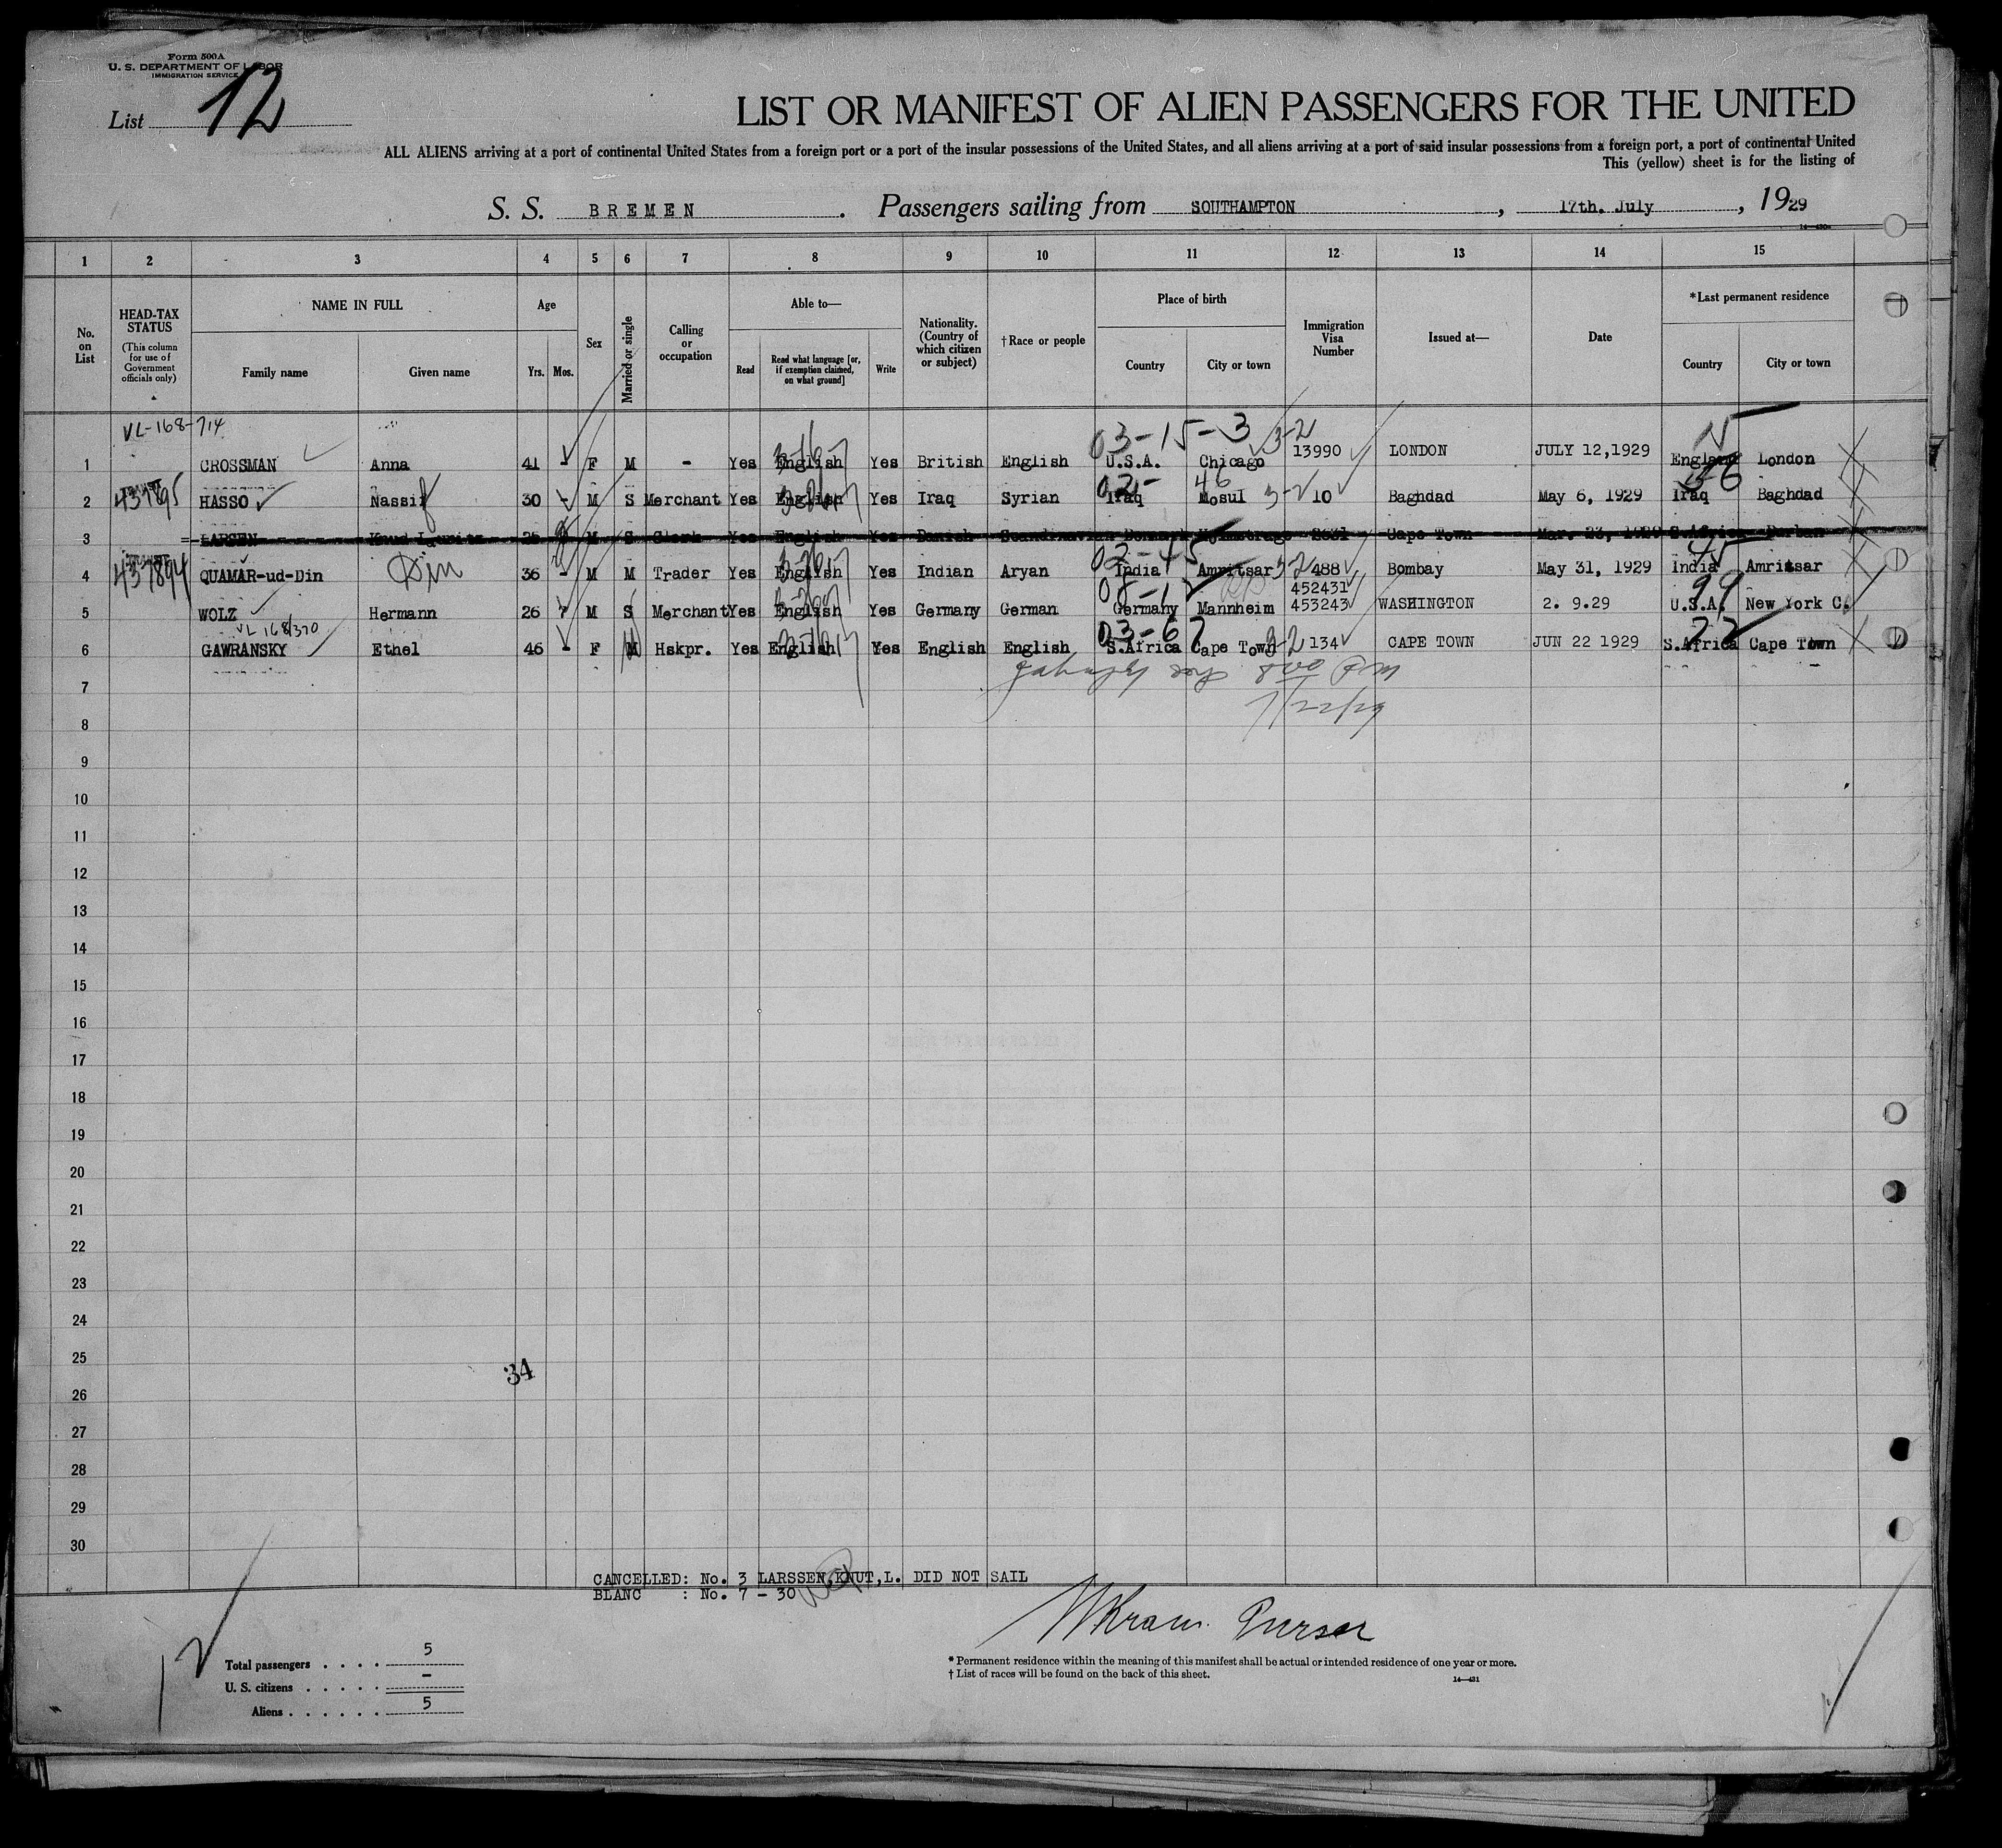 Form 500A
U. S. DEPARTMENT OF LABOR
IMMIGRATION SERVICE
List 12
LIST OR MANIFEST OF ALIEN PASSENGERS FOR THE UNITED
ALL ALIENS arriving at a port of continental United States from a foreign port or a port of the insular possessions of the United States, and all aliens arriving at a port of said insular possessions from a foreign port, a port of continental United
This (yellow) sheet is for the listing of
S. S. BREMEN . Passengers sailing from SOUTHAMPTON , 17th. July , 1929
1 2 3 4 5 6 7 8 9 10 11 12 13 14 15
No. on List
HEAD-TAX STATUS
(This column for use of Government officials only)
NAME IN FULL
Family name Given name
Age
Yrs. Mos.
Sex
Married or single
Calling or occupation
Able to—
Read Read what language [or, if exemption claimed, on what ground] Write
Nationality. (Country of which citizen or subject)
† Race or people
Place of birth
Country City or town
Immigration Visa Number
Issued at—
Date
*Last permanent residence
Country City or town
VL-168-714
03-15-3 3-2
1 CROSSMAN Anna 41 - F M - Yes English Yes British English U.S.A. Chicago 13990 LONDON JULY 12,1929 England London
2 437895 HASSO Nassif 30 - M S Merchant Yes English Yes Iraq Syrian Iraq Mosul 3-2 10 Baghdad May 6, 1929 Iraq Baghdad
3 LARSEN M S Clerk Yes English Yes Danish Scandinavian Denmark 2631 Cape Town Mar. 23, 1929 S.Africa Durban
4 437894 QUAMAR-ud-Din Din 36 - M M Trader Yes English Yes Indian Aryan India Amritsar 3-2 488 Bombay May 31, 1929 India Amritsar
452431
5 WOLZ Hermann 26 7 M S Merchant Yes English Yes Germany German Germany Mannheim 453243 WASHINGTON 2. 9.29 U.S.A. New York C.
VL 168/370
6 GAWRANSKY Ethel 46 - F M Hskpr. Yes English Yes English English S.Africa Cape Town 3-2 134 CAPE TOWN JUN 22 1929 S.Africa Cape Town
7
7/22/29
8
9
10
11
12
13
14
15
16
17
18
19
20
21
22
23
24
25
34
26
27
28
29
30
CANCELLED: No. 3 LARSSEN,KNUT,L. DID NOT SAIL
BLANC : No. 7 - 30
Purser
Total passengers . . . . 5
U. S. citizens . . . . . -
Aliens . . . . . . 5
* Permanent residence within the meaning of this manifest shall be actual or intended residence of one year or more.
† List of races will be found on the back of this sheet.
14—431